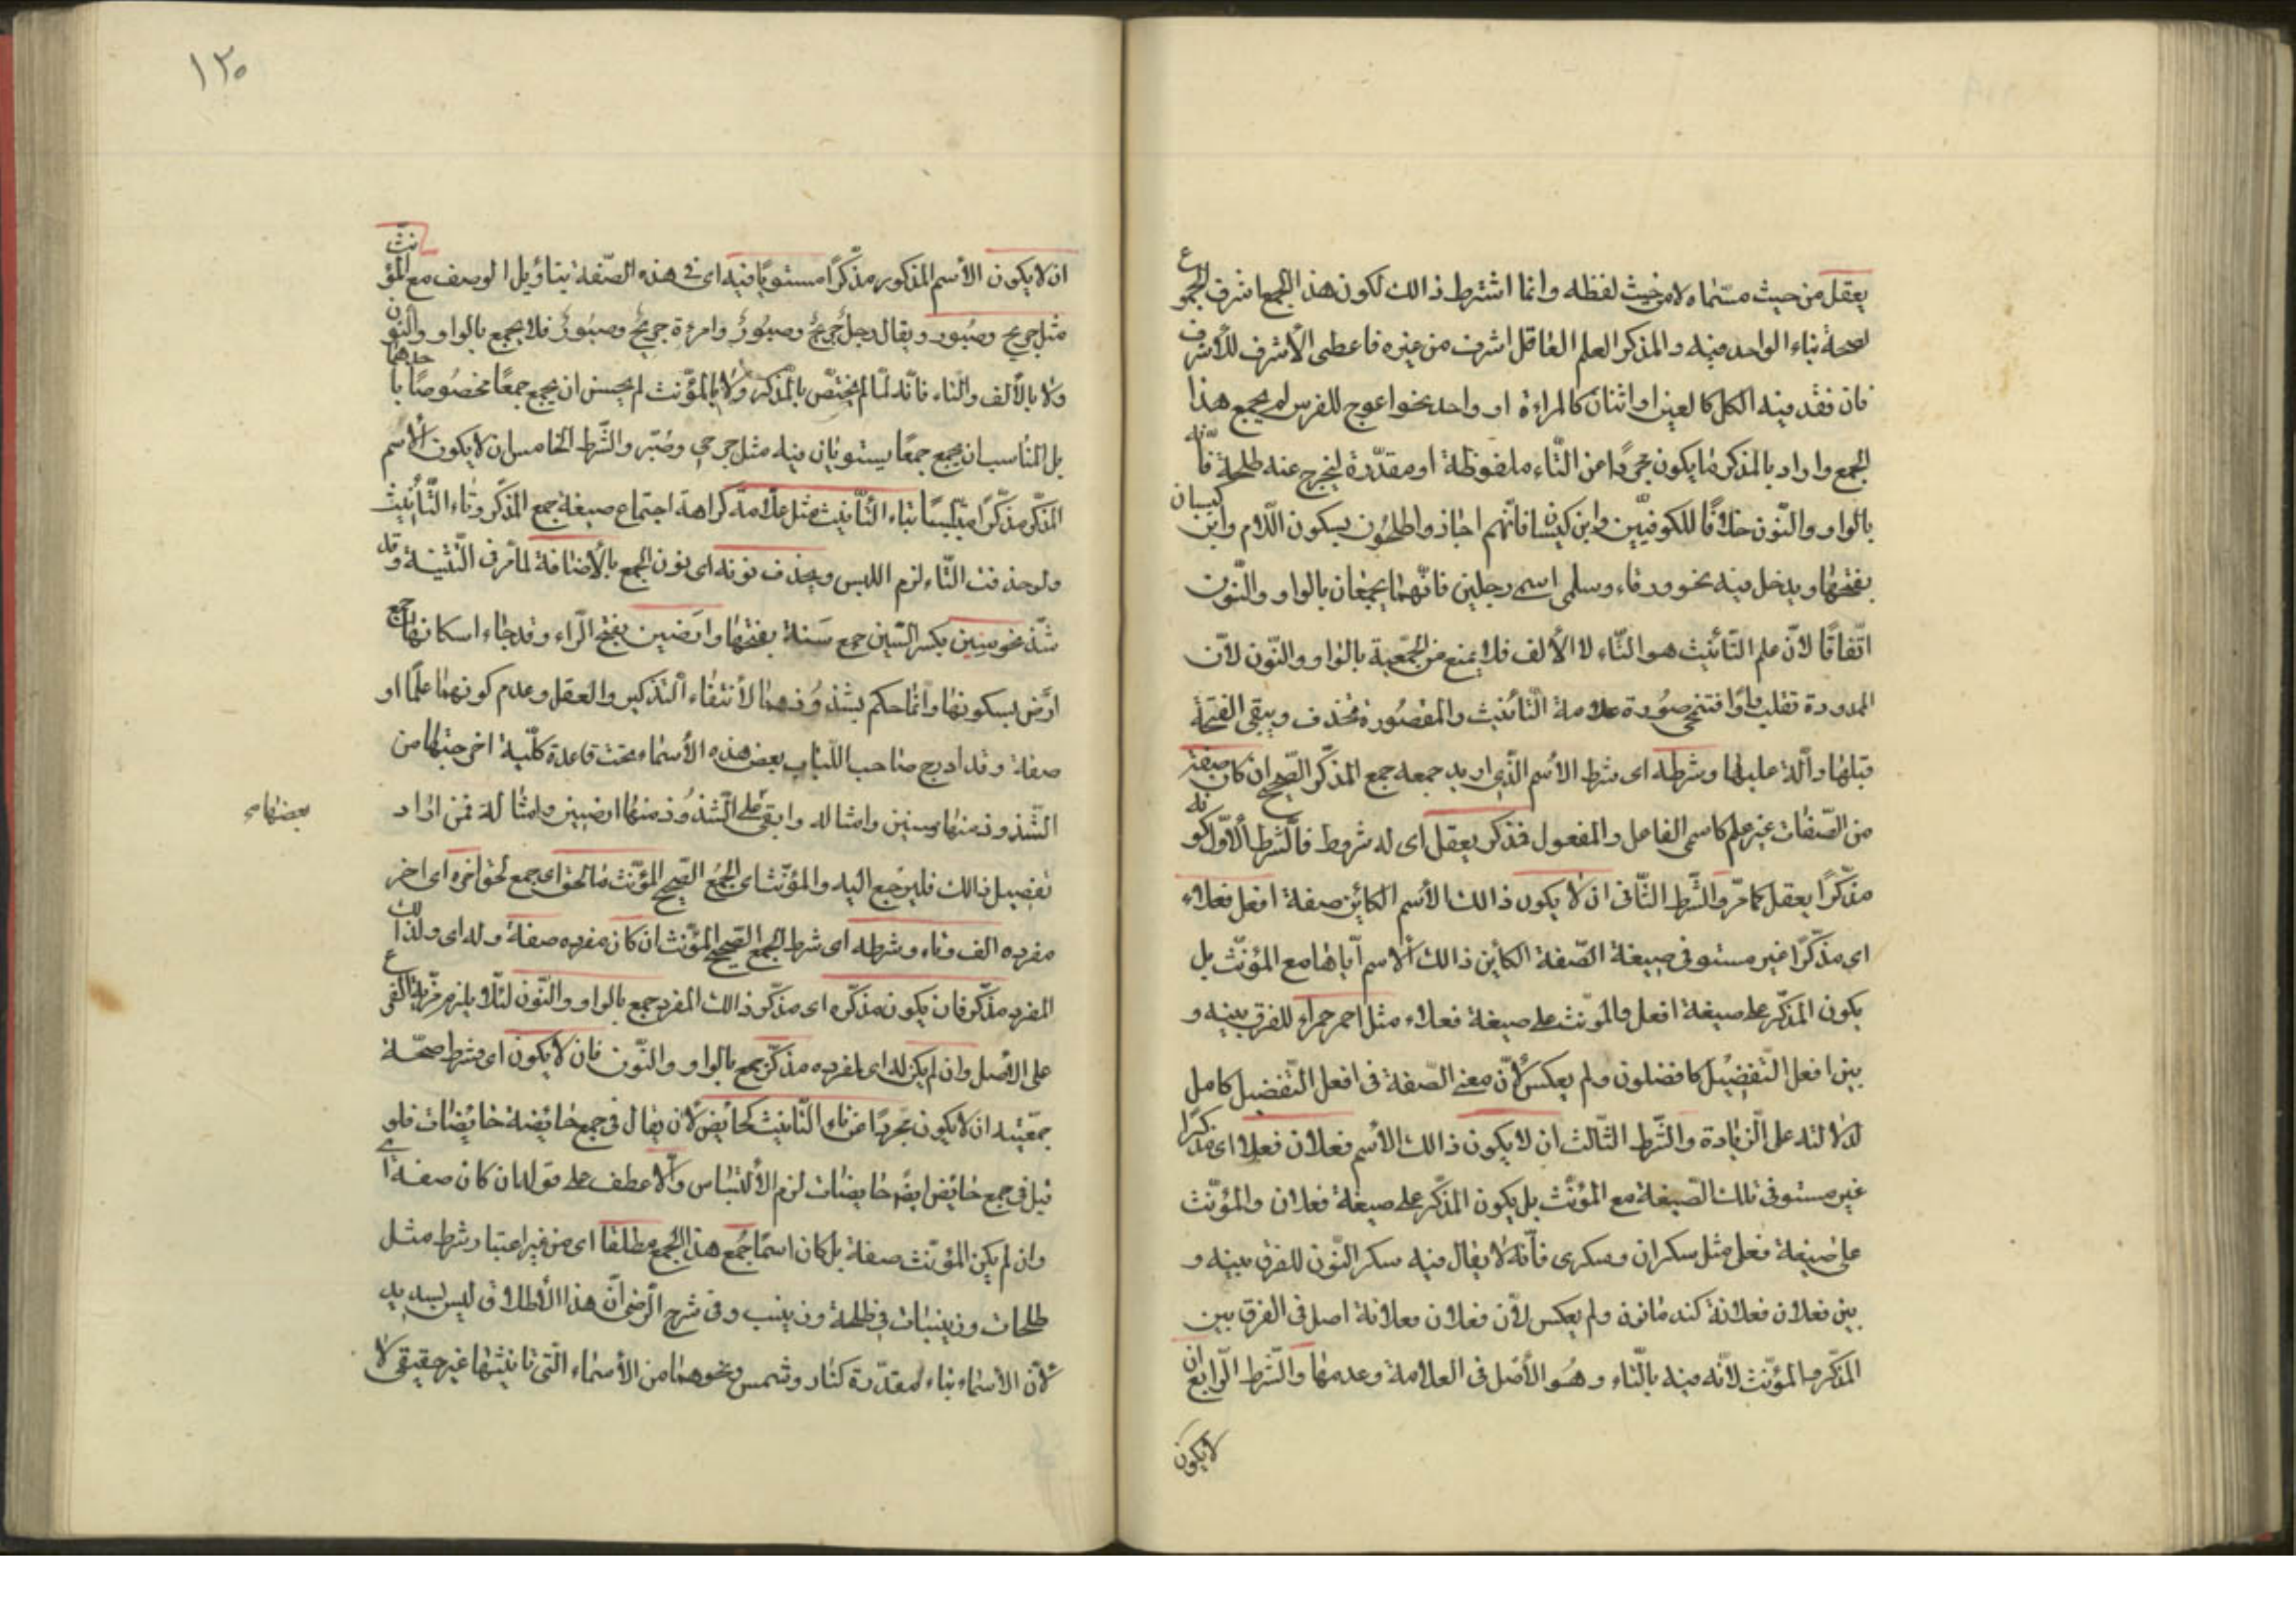 يعقل من حيث مسماه لا من حيث لفظه وانما اشترط ذالك لكون هذا الجمع اشرف الجموع
لصحة بناء الواحد فيه والمذكر العلم العاقل اشرف من غيره فاعطى الأشرف للأشرف
فان فقد فيه الكل كالعين او اثنان كالمراءة او واحد نحو اعوج للفرس لم يجمع هذا
الجمع واراد بالمذكر ما يكون مجردًا عن التّاء ملفوظة او مقدّرة ليخرج عنه طلحة فانّه
بالواو والنّون خلافًا للكوفيّين وابن كيسان فانّهم اجازوا طلحُون بسكون اللّام وابن كيسان
بفتحها ويدخل فيه نحو ورقاء وسلمى اسمى رجلين فانّهما يجمعان بالواو والنّون
اتّفاقًا لأنّ علم التّأنيث هو التّاء لا الألف فلا يمنع من الجمعيّة بالواو والنّون لأنّ
الممدودة تقلب واوًا فتنمحى صُورة علامة التّأنيث والمقصُورة تحذف ويبقى الفتحة
قبلها دالّة عليها وشرطه اى شرط الأسم الّذى اريد جمعه جمع المذكّر الصّحيح ان كان صفة
من الصّفات غير علم كاسمى الفاعل والمفعول فذكر يعقل اى له شروط فالشّرط الأوّل كونه
مذكّرًا يعقل كما مرّ والشّرط الثّانى ان لا يكون ذالك الأسم الكائن صفة افعل فعلاء
اى مذكّرًا غير مستو فى صيغة الصّفة الكائن ذالك الاسم ايّاها مع المؤنّث بل
يكون المذكّر على صيغة افعل والمؤنّث على صيغة فعلاء مثل احمر حمراء للفرق بينه و
بين افعل التّفضيل كافضلون ولم يعكس لأنّ معنى الصّفة فى افعل التّفضيل كامل
لدلالته على الزّيادة والشّرط الثّالث ان لا يكون ذالك الأسم فعلان فعلى اى مذكرًا
غير مستو فى تلك الصّيغة مع المؤنّث بل يكون المذكّر على صيغة فعلان والمؤنّث
على صيغة فعلى مثل سكران وسكرى فانّه لا يقال فيه سكر النّون للفرق بينه و
بين فعلان فعلانة كندمانة ولم يعكس لأنّ فعلان فعلانة اصل فى الفرق بين
المذكّر والمؤنّث لأنّه فيه بالتّاء وهُو الأصل فى العلامة وعدمها والشّرط الرّابع ان
لايكون
١٣٠
ان لا يكون الأسم المذكور مذكّرًا مستويًا فيه اى فى هذه الصّفة بتاويل الوصف مع المؤنّث
مثل جريح وصُبور ويقال رجلٌ جريحٌ وصبُورٌ وامرءة جريحٌ وصبُورٌ فلا يجمع بالواو والنّون
ولا بالألف والتّاء فانّه لمّا لم يختصّ بالمذكر ولا بالمؤنّث لم يحسن ان يجمع جمعًا مخصُوصًا باحدهما
بل المناسب ان يجمع جمعًا يستويان فيه مثل جرحى وصُبر والشّرط الخامس ان لا يكون الأسم
المذكّر مذكّرًا متلبّسًا بتاء التّأنيث مثل علّامة كراهة اجتماع صيغة جمع المذكّر وتاء التّأنيث
ولو حذفت التّاء لزم اللبس ويحذف نونه اى نون الجمع بالأضافة لما مرّ فى التّثنية وقد
شذّ نحو سنين بكسر السّين جمع سَنة بفتحها وارَضين بفتح الرّاء وقد جاء اسكانها جمع
ارَض بسكونها وانّما حكم بشذُوذهما لأنتفاء التذكير والعقل وعدم كونهما علمًا او
صفة وقد ادرج صاحب اللّباب بعض هذه الأسماء تحت قاعدة كلّية اخرجتها من
الشّذوذ منها سنين وامثاله وابقى على الشّذُوذ منها ارضين وامثاله فمن اراد
بعضها
تفصيل ذالك فليرجع اليه والمؤنّث اى الجمع الصّحيح المؤنّث ما لحق اى جمع لحق اخره اى اخر
مفرده الف وتاء وشرطه اى شرط الجمع الصّحيح المؤنّث ان كان مفرده صفة وله اى ولذالك
المفرد مذكّر فان يكون مذكّره اى مذكّر ذالك المفرد جمع بالواو والنّون لئلّا يلزم مزيّة الفرع
على الأصل وان لم يكن له اى لمفرده مذكّر يجمع بالواو والنّون فان لا يكون اى شرط صحّة
جمعيّته ان لا يكون مجرّدًا عن تاء التّانيث كحائض لأن يقال فى جمع حائضة حائضات فلو
قيل فى جمع حائض ايضًا حايضات لزم الألتباس والّا عطف على قوله ان كان صفة اى
وان لم يكن المؤنّث صفة بل كان اسمًا جُمع هذا الجمع مطلقا اى من غير اعتبار شرط مثل
طلحات وزينبات فى طلحة وزينب وفى شرح الرّضى انّ هذا الأطلاق ليس بسديد
لأنّ الأسماء بتاء مقدّرة كنار وشمس ونحوهما من الأسماء الّتى تانيثها غير حقيقى لا